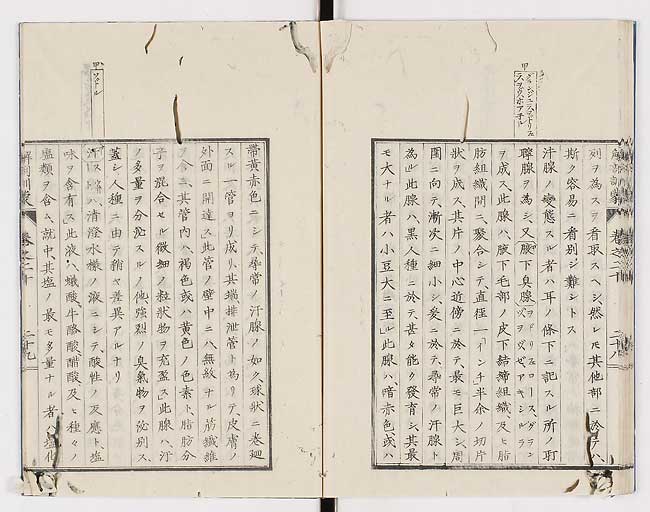 列ヲ為スヲ看取スヘシ然レ𪜈其他部ニ於テハ
斯ク容易ニ看別シ難シトス
汗腺ノ変態スル者ハ耳ノ條下ニ記スル所ノ耵
聹腺ヲ為シ又腋下臭腺
ヲ成ス此腺ハ腋下毛部ノ皮下結締組織及ヒ脂
肪組織間ニ聚合シテ直径一「インチ」半余ノ切片
状ヲ成ス其片ノ中心近傍ニ於テ最モ巨大シ周
圍ニ向テ漸次ニ細小シ爰ニ於テ尋常ノ汗腺ト
為ル此腺ハ黒人種ニ於テ甚タ能ク發育シ其最
モ大ナル者ハ小豆大ニ至ル此腺ハ暗赤色或ハ
二十八
甲
帯黄赤色ニシテ尋常ノ汗腺ノ如ク球状ニ巻廻
スル一管ヨリ成リ其端排泄管ト為リテ皮膚ノ
外面ニ開達ス此管ノ壁中ニハ無紋ナル筋纖維
ヲ含ミ其管内ハ褐色或ハ黄色ノ色素ト脂肪分
子ヲ混合セル微細ノ粒状物ヲ充盈ス此腺ハ汗
ノ多量ヲ分泌スルノ他強烈ノ臭氣物ヲ泌別ス
蓋シ人種ニ由テ稍々差異アルナリ
汗ハ清澄水様ノ液ニシテ酸性ノ反應ト塩
味ヲ含有ス此液ハ蟻酸牛酪酸醋酸及ヒ種々ノ
塩類ヲ含ム就中其塩ノ最モ多量ナル者ハ塩化
解剖訓蒙
巻之二十
二十九
甲